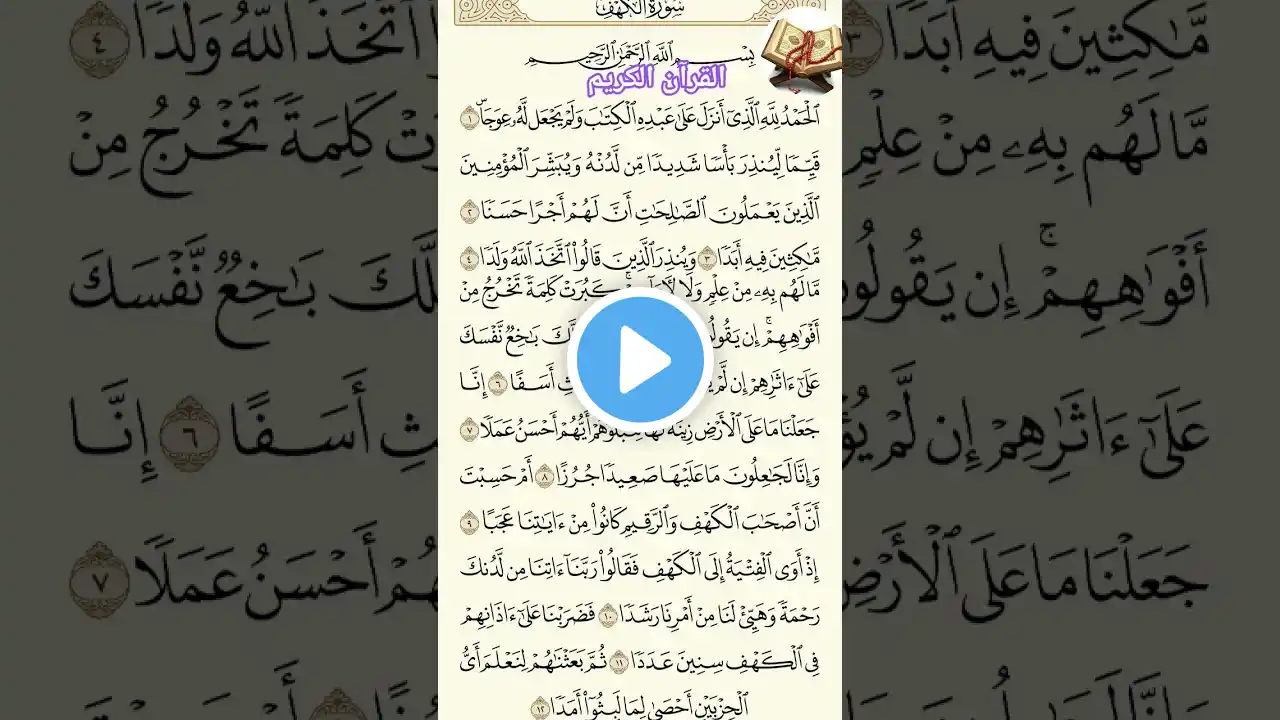 سُورَةُ الْكَهْفِ
بِسْمِ اللَّهِ الرَّحْمَٰنِ الرَّحِيمِ
القرآن الكريم
ٱلْحَمْدُ لِلَّهِ ٱلَّذِىٓ أَنزَلَ عَلَىٰ عَبْدِهِ ٱلْكِتَٰبَ وَلَمْ يَجْعَل لَّهُۥ عِوَجَاۜ ١
قَيِّمًا لِّيُنذِرَ بَأْسًا شَدِيدًا مِّن لَّدُنْهُ وَيُبَشِّرَ ٱلْمُؤْمِنِينَ
ٱلَّذِينَ يَعْمَلُونَ ٱلصَّٰلِحَٰتِ أَنَّ لَهُمْ أَجْرًا حَسَنًا ٢
مَّٰكِثِينَ فِيهِ أَبَدًا ٣ وَيُنذِرَ ٱلَّذِينَ قَالُوا۟ ٱتَّخَذَ ٱللَّهُ وَلَدًا ٤
مَّا لَهُم بِهِۦ مِنْ عِلْمٍ وَلَا كَبُرَتْ كَلِمَةً تَخْرُجُ مِنْ
أَفْوَٰهِهِمْ ۚ إِن يَقُولُو بَٰخِعٌ نَّفْسَكَ
عَلَىٰٓ ءَاثَٰرِهِمْ إِن لَّمْ أَسَفًا ٦ إِنَّا
جَعَلْنَا مَا عَلَى ٱلْأَرْضِ زِينَةً لَّهَا لِنَبْلُوَهُمْ أَيُّهُمْ أَحْسَنُ عَمَلًا ٧
وَإِنَّا لَجَٰعِلُونَ مَا عَلَيْهَا صَعِيدًا جُرُزًا ٨ أَمْ حَسِبْتَ
أَنَّ أَصْحَٰبَ ٱلْكَهْفِ وَٱلرَّقِيمِ كَانُوا۟ مِنْ ءَايَٰتِنَا عَجَبًا ٩
إِذْ أَوَى ٱلْفِتْيَةُ إِلَى ٱلْكَهْفِ فَقَالُوا۟ رَبَّنَآ ءَاتِنَا مِن لَّدُنكَ
رَحْمَةً وَهَيِّئْ لَنَا مِنْ أَمْرِنَا رَشَدًا ١٠ فَضَرَبْنَا عَلَىٰٓ ءَاذَانِهِمْ
فِى ٱلْكَهْفِ سِنِينَ عَدَدًا ١١ ثُمَّ بَعَثْنَٰهُمْ لِنَعْلَمَ أَىُّ
ٱلْحِزْبَيْنِ أَحْصَىٰ لِمَا لَبِثُوٓا۟ أَمَدًا ١٢